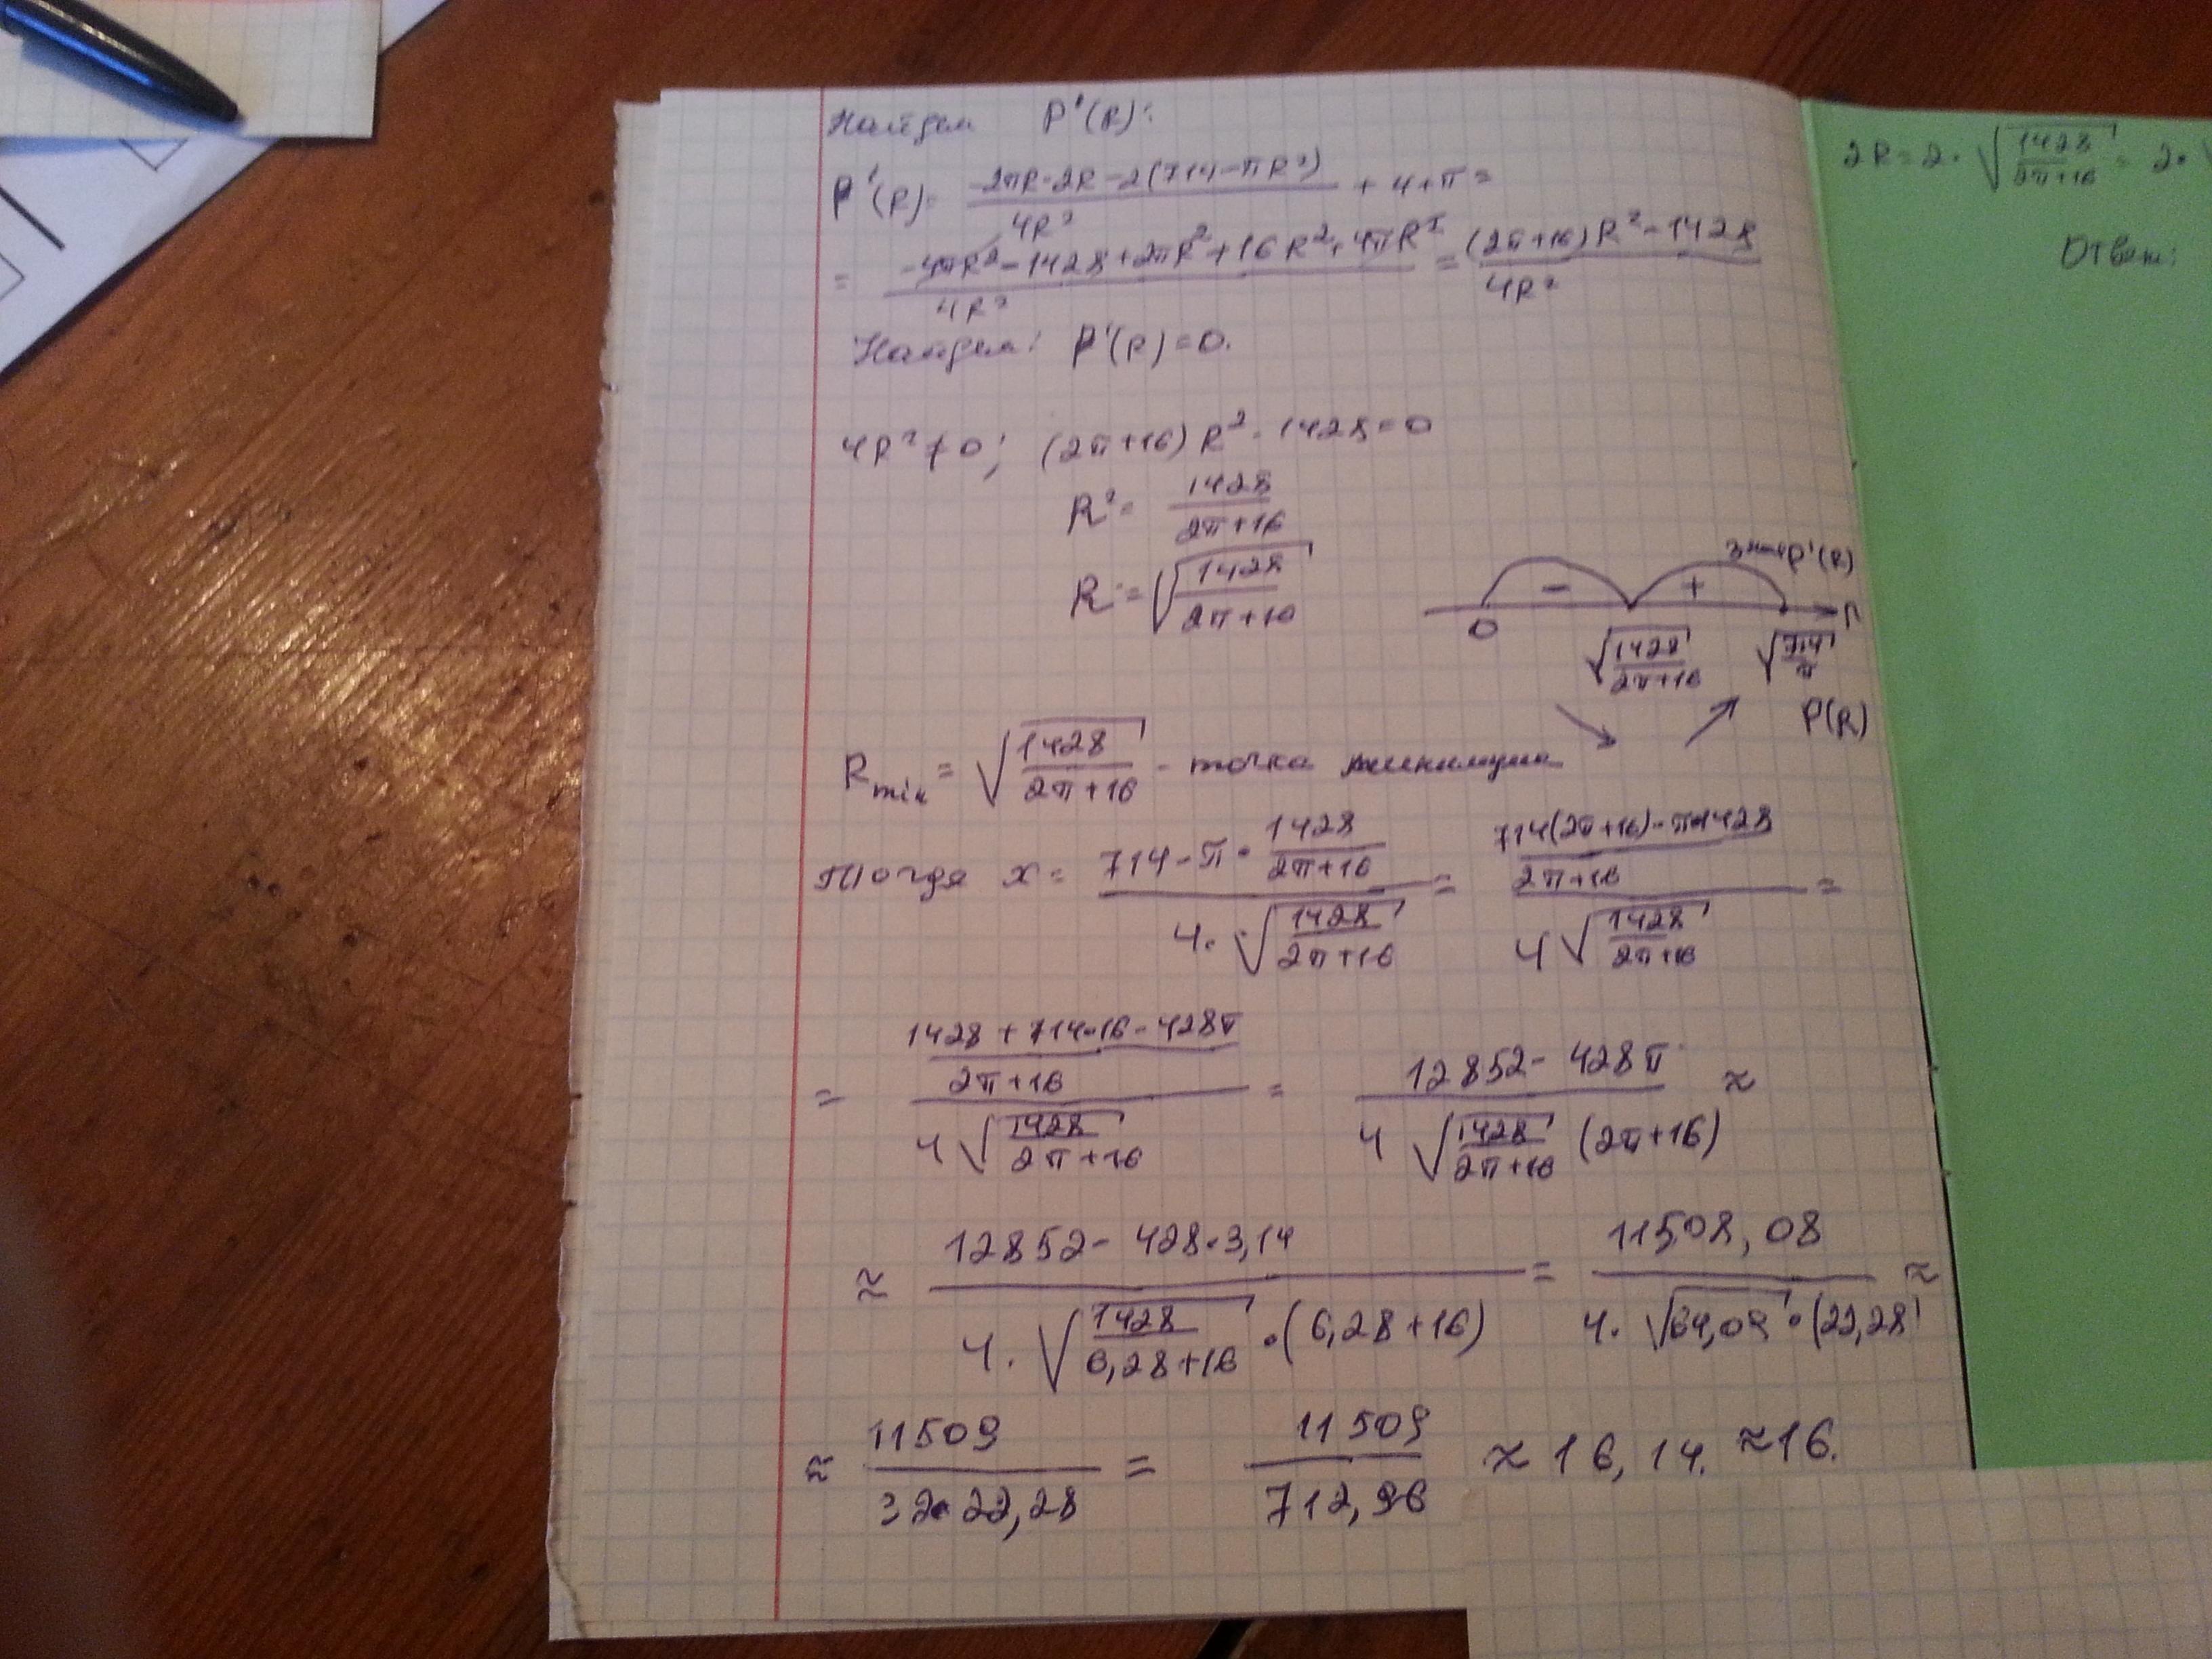 Найдем P'(R):
P'(R)= (-2πR·2R-2(714-πR²))/4R² + 4+π =
= (-4πR²-1428+2πR²+16R²+4πR²)/4R² = ((2π+16)R²-1428)/4R²
Найдем: P'(R)=0.
4R²≠0; (2π+16)R²-1428=0
R²= 1428/(2π+16)
R=√(1428/(2π+16))
знак P'(R)
- +
0 √(1428/(2π+16)) √(714/π)
P(R)
Rmin = √(1428/(2π+16)) - точка минимума
Тогда x = (714-π·1428/(2π+16))/(4·√(1428/(2π+16))) = ((714(2π+16)-π·1428)/(2π+16))/(4√(1428/(2π+16))) =
= ((1428+714·16-428π)/(2π+16))/(4√(1428/(2π+16))) = (12852-428π)/(4√(1428/(2π+16))(2π+16)) ≈
≈ (12852-428·3,14)/(4·√(1428/(6,28+16))·(6,28+16)) = 11508,08/(4·√64,09·(22,28)) ≈
≈ 11509/(32·22,28) = 11509/712,96 ≈ 16,14. ≈16.
2R=2·√(1428/(2π+16)) = 2·√
Ответ: